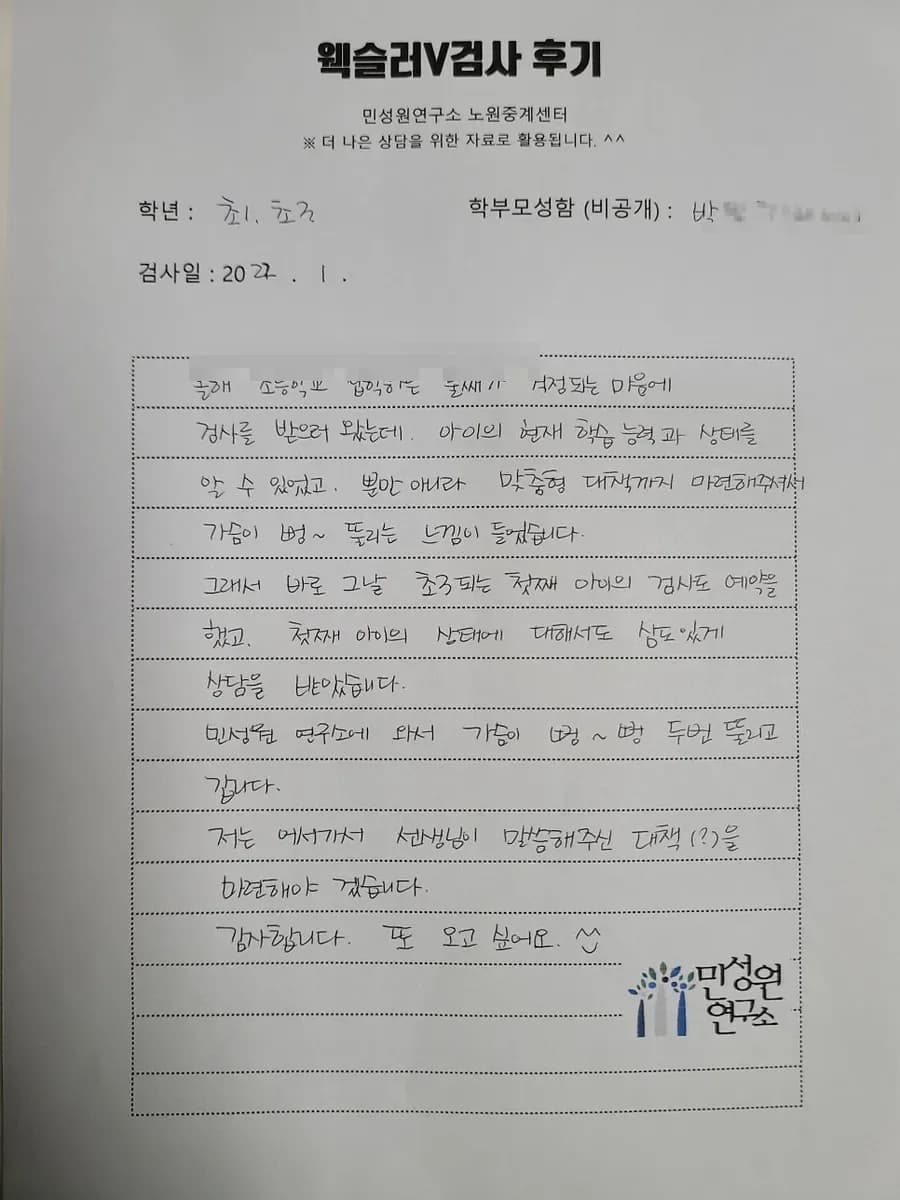 웩슬러V검사 후기
민성원연구소 노원중계센터
※ 더 나은 상담을 위한 자료로 활용됩니다. ^^
학년 : 초1. 초3
학부모성함 (비공개) : 박
검사일 : 2022 . 1 .
올해 초등학교 입학하는 둘째가 걱정되는 마음에
검사를 받으러 왔는데. 아이의 현재 학습 능력과 상태를
알 수 있었고. 뿐만 아니라 맞춤형 대책까지 마련해주셔서
가슴이 뻥~ 뚫리는 느낌이 들었습니다.
그래서 바로 그날 초3되는 첫째 아이의 검사도 예약을
했고. 첫째 아이의 상태에 대해서도 심도있게
상담을 받았습니다.
민성원 연구소에 와서 가슴이 뻥~뻥 두번 뚫리고
갑니다.
저는 어서가서 선생님이 말씀해주신 대책(?)을
마련해야 겠습니다.
감사합니다. 또 오고 싶어요. ^^
민성원
연구소